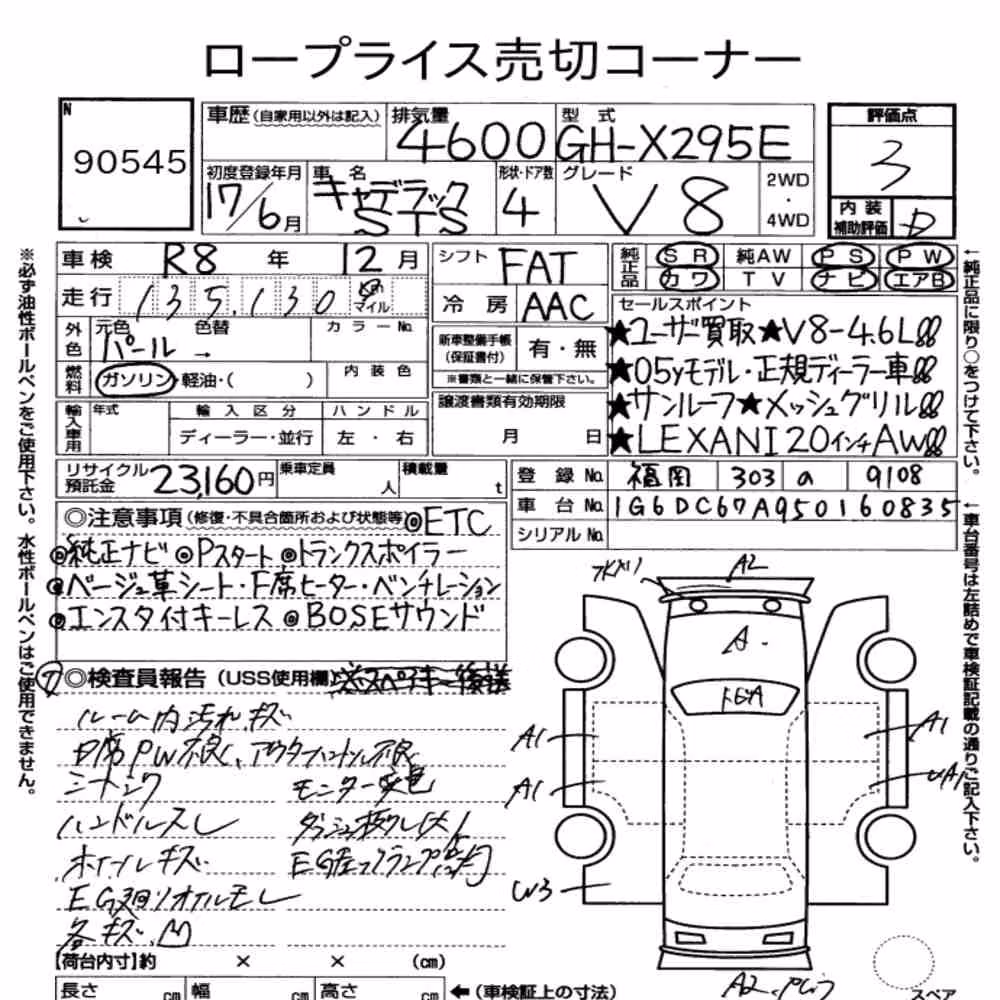 ロープライス売切コーナー
N
90545
車歴 (自家用以外は記入)
排気量
4600
型式
GH-X295E
評価点
3
初度登録年月
17/6月
車名
キャデラック
STS
形状・ドア数
4
グレード
V8
2WD
・
4WD
内装
補助評価
D
車検 R8 年 12月
走行 135,130 km マイル
シフト FAT
冷房 AAC
純正品 SR 純AW PS PW
カワ TV ナビ エアB
セールスポイント
★ユーザー買取★V8-4.6L!!
★05yモデル・正規ディーラー車!!
★サンルーフ★メッシュグリル!!
★LEXANI20インチAW!!
外色
元色 パール
色替 →
カラーNo.
燃料 ガソリン・軽油・( )
内装色
新車整備手帳
(保証書付)
有・無
※書類と一緒に保管下さい。
輸入車用
年式
輸入区分
ディーラー・並行
ハンドル
左・右
譲渡書類有効期限
月 日
リサイクル
預託金
23,160円
乗車定員
人
積載量
t
登録No. 福岡 303 a 9108
車台No. 1G6DC67A950160835
シリアルNo.
◎注意事項 (修復・不具合箇所および状態等) ◎ETC
◎純正ナビ ◎Pスタート ◎トランクスポイラー
◎ベージュ革シート・F席ヒーター・ベンチレーション
◎エンスタ付キーレス ◎BOSEサウンド
◎検査員報告 (USS使用欄)
ルーム内汚れ、キズ
D席PW不良、アウターハンドル不良
シートシワ モニター変色
ハンドルスレ
ホイールキズ
EG廻りオイルモレ
各キズ、凹
【荷台内寸】約 × × (cm)
長さ cm 幅 cm 高さ cm ←(車検証上の寸法)
A2
A
トビA
A1
A1
A1
UA1
W3
A2
スペア
※必ず油性ボールペンをご使用下さい。水性ボールペンはご使用できません。
←純正品に限り○をつけて下さい。
←車台番号は左詰めで車検証記載の通りご記入下さい。